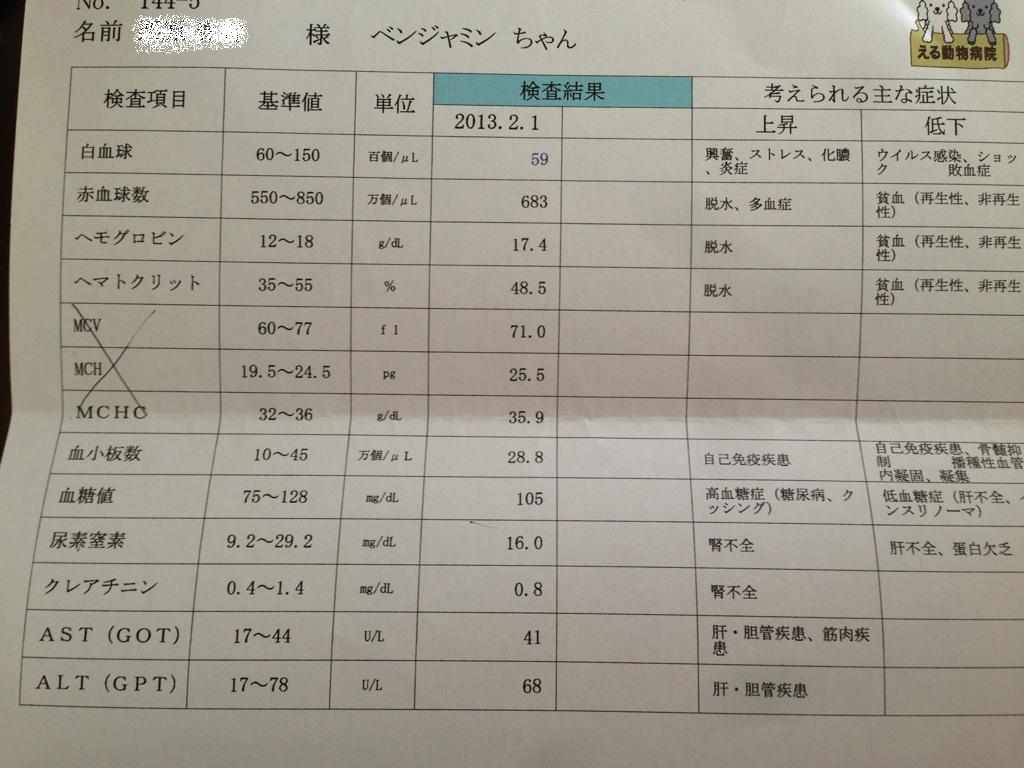 No. 144-5
名前 様 ベンジャミン ちゃん
える動物病院
検査項目 基準値 単位 検査結果 考えられる主な症状
2013.2.1 上昇 低下
白血球 60～150 百個/μL 59 興奮、ストレス、化膿 ウイルス感染、ショッ
、炎症 ク 敗血症
赤血球数 550～850 万個/μL 683 脱水、多血症 貧血（再生性、非再生
性）
ヘモグロビン 12～18 g/dL 17.4 脱水 貧血（再生性、非再生
性）
ヘマトクリット 35～55 % 48.5 脱水 貧血（再生性、非再生
性）
MCV 60～77 fl 71.0
MCH 19.5～24.5 pg 25.5
MCHC 32～36 g/dL 35.9
血小板数 10～45 万個/μL 28.8 自己免疫疾患 自己免疫疾患、骨髄抑
制 播種性血管
内凝固、凝集
血糖値 75～128 mg/dL 105 高血糖症（糖尿病、ク 低血糖症（肝不全、イ
ッシング） ンスリノーマ）
尿素窒素 9.2～29.2 mg/dL 16.0 腎不全 肝不全、蛋白欠乏
クレアチニン 0.4～1.4 mg/dL 0.8 腎不全
AST（GOT） 17～44 U/L 41 肝・胆管疾患、筋肉疾
患
ALT（GPT） 17～78 U/L 68 肝・胆管疾患